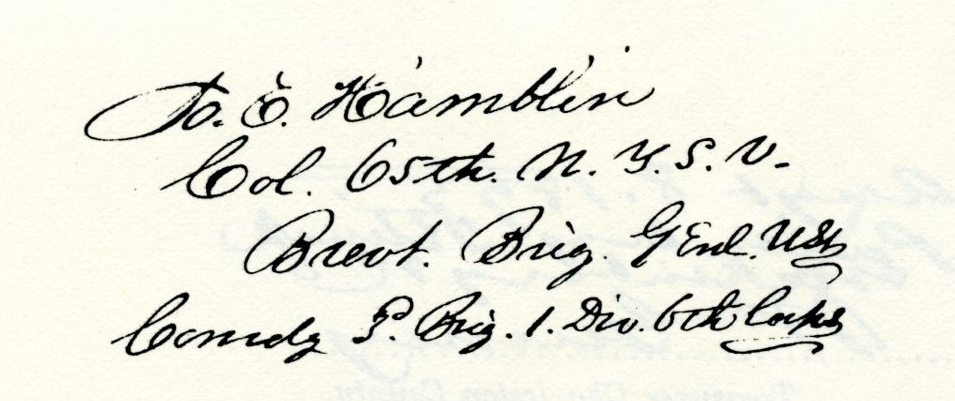 Jo. E. Hamblin
Col. 65th. N. Y. S. V.
Brevt. Brig. Genl. USV
Comdg 2. Brig. 1. Div. 6th Corps